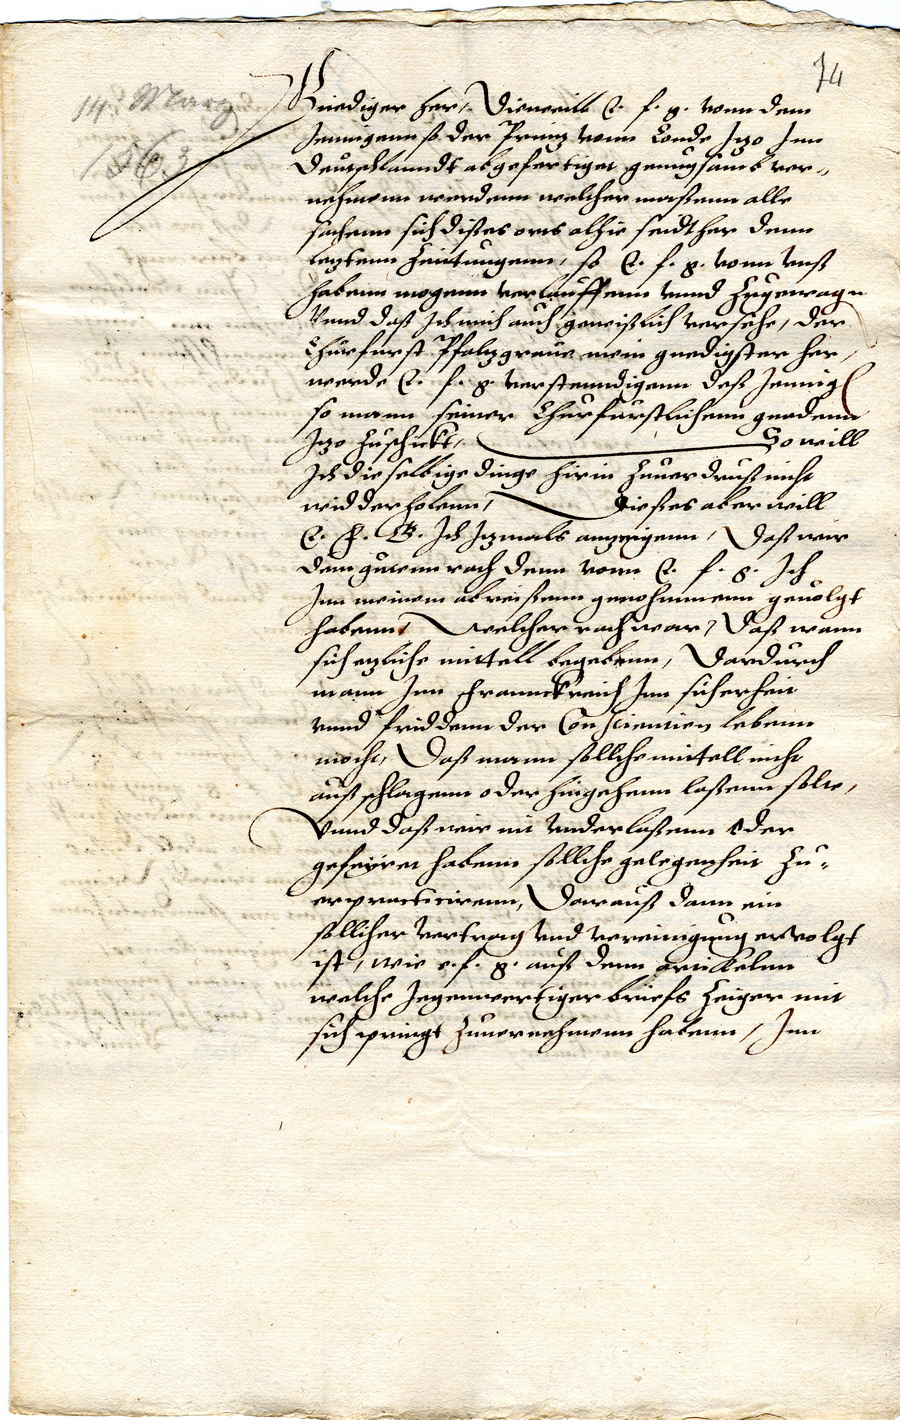 74
14. Marz
1563
Gnediger her, Dieweill E. f. g. vonn dem
Jennigenn so der Prinz vonn Conde Jtzo Jnn
Deutzschlanndt abgefertiget genugsamb ver-
nehmenn werdenn welcher maßenn alle
sachenn sich dißes orts alhie seidther denn
letztenn Zeittungenn, so E. f. g. vonn vnß
habenn mogenn verlauffenn vnnd Zugetragn
Vnnd daß Jch mich auch gewißlich versehe, der
Churfurst Pfaltzgraue mein gnedigster her,
werde E. f. g. verstenndigenn deß Jennig
so mann seiner Churfurstlichenn gnadenn
Jtzo Zuschickt, So will
Jch die selbige dinge hirin Zuuerdruß nicht
widderholenn, Dießes aber will
E. F. G. Jch Jtzmals antzeigenn, Daß wir
dem gutenn rath denn vonn E. f. g. Jch
Jnn meinem abreißenn genohmmenn geuolgt
habenn, welcher rath war, Daß wann
sich etzliche mittell begebenn, Dardurch
mann Jnn Frannckreich Jnn sicherheit
vnnd fridden der Consscientien lebenn
mocht, Daß mann sollche mittell nicht
außschlagenn oder hingehenn laßenn solte,
Vnnd daß wir nit vnderlaßenn oder
gefeyret habenn sollche gelegenheit Zu-
erpracticirenn, Darauß dann ein
sollicher vertrag vnd vereinigung eruolgt
ist, wie e. f. g. auß denn artickelnn
welche Jegenwertiger briefs Zeiger mit
sich pringt Zuuernehmenn habenn, Jnn